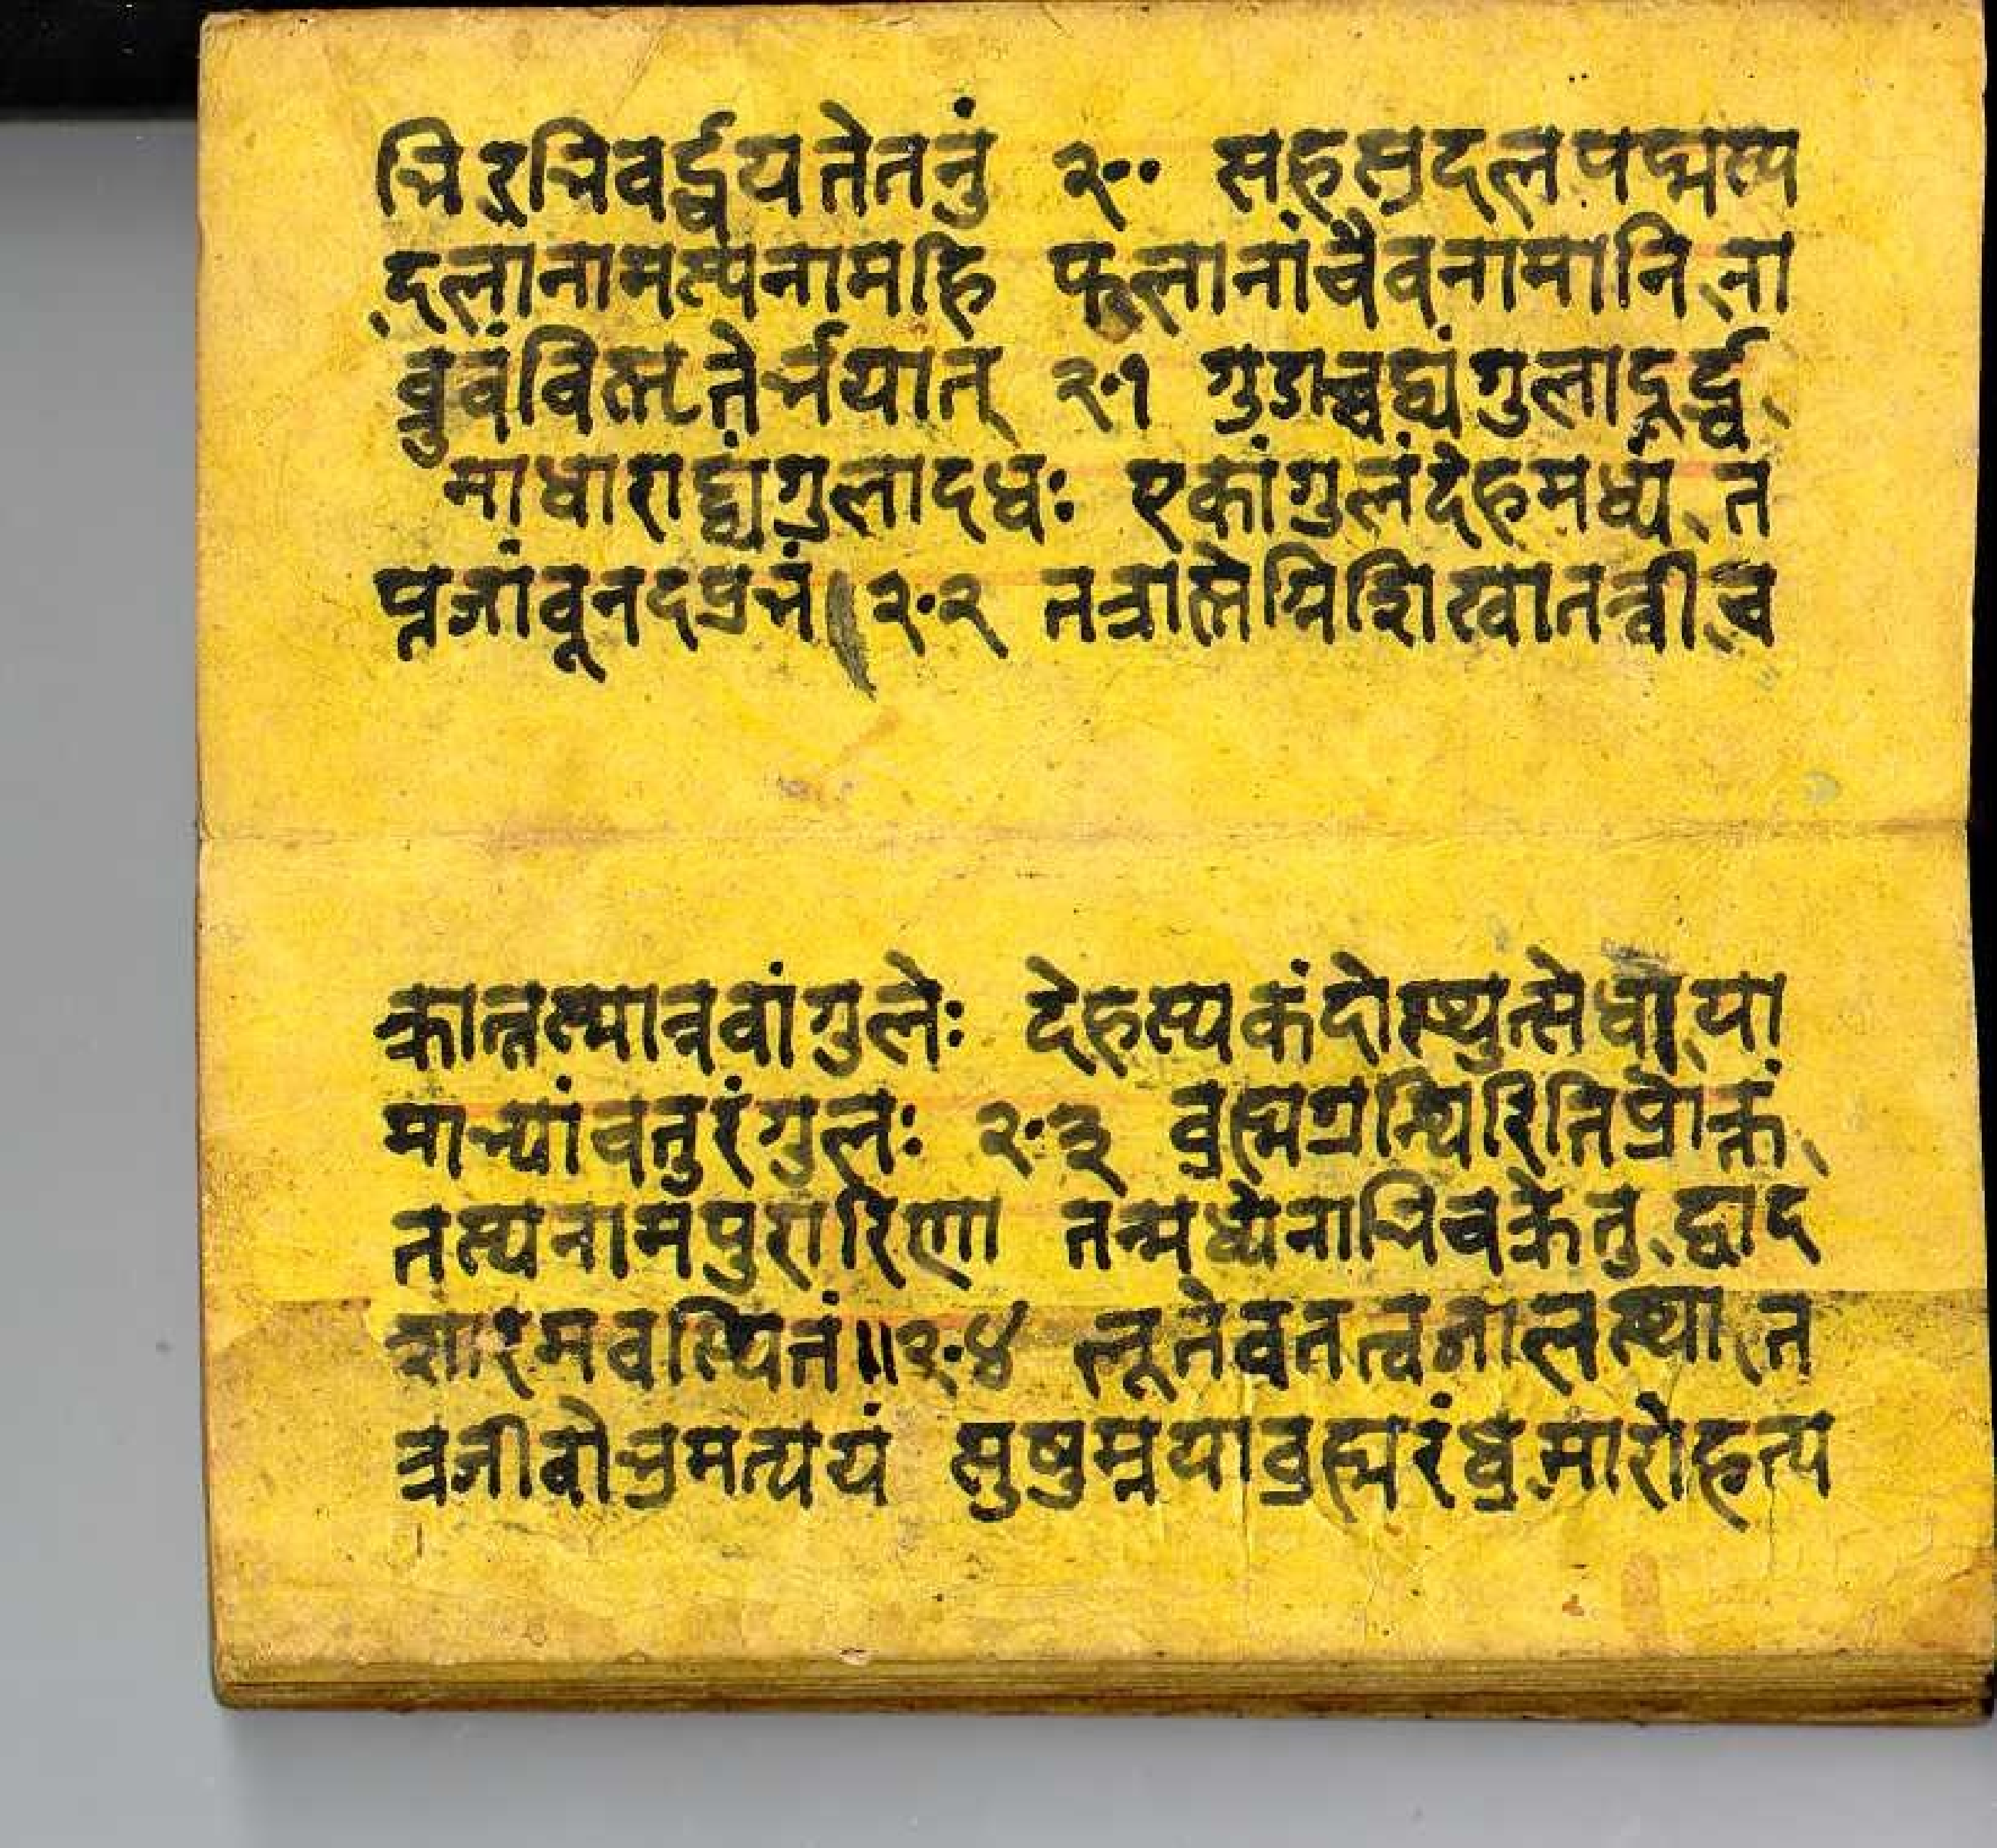 भिरभिवर्द्धयतेतनुं २०० सहस्रदलपद्मस्य
दलानामस्यनामहि फलानांचैवनामानि ना
ब्रुवंविस्तृतेर्भयात् २०१ गुडाच्चद्व्यंगुलादूर्द्ध्व
माधाराद्द्व्यंगुलादधः एकांगुलंदेहमध्यं त
प्तजांवूनदप्रभं २०२ तत्रास्तेग्निशिखातन्वी च
क्रात्तस्मान्नवांगुलेः देहस्यकंदोस्थ्युत्सेधा या
माभ्यांचतुरंगुलः २०३ व्रह्मग्रन्थिरितिप्रोक्तं
तस्यनामपुरारिणा तन्मध्येनाभिचक्रेतु द्वाद
शारमवस्थितं॥२०४ लूतेवतत्वजालस्था त
त्रजीवोभ्रमत्ययं सुषुम्नयाव्रह्मरंध्रमारोहत्य